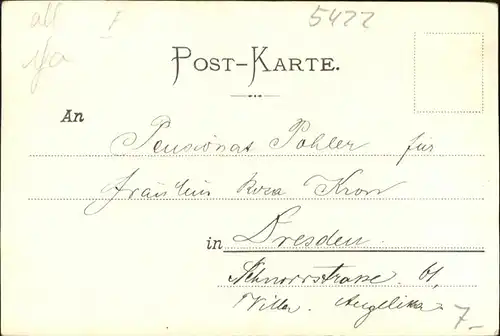 all I 5422
Ya
POST-KARTE.
An Pensionat Pohler für
Fräulein Rosa Kron
in Dresden.
Schnorrstrasse. 61,
Villa. Angelika 7.-